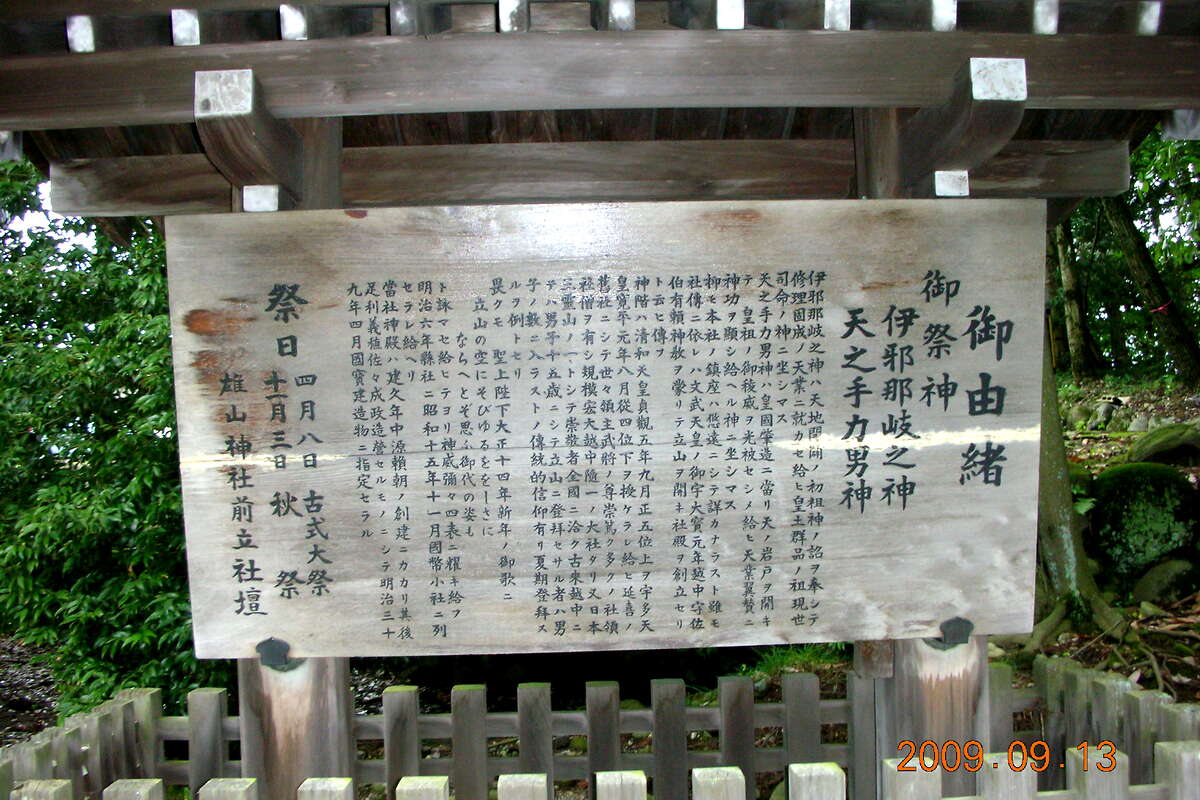 御由緒
御祭神
伊耶那岐之神
天之手力男神
伊耶那岐之神ハ天地開闢ノ初祖神ノ詔ヲ奉シテ
修理固成ノ天業ニ就カセ給ヒ皇土群品ノ祖現世
司命ノ神ニ坐シマス
天之手力男神ハ皇國肇造ニ當リ天ノ岩戸ヲ開キ
テ皇祖ノ御稜威ヲ光被セシメ給ヒ天業翼贊ニ
神功ヲ顯シ給ヘル神ニ坐シマス
抑モ本社ノ鎮座ハ悠遠ニシテ詳カナラスト雖モ
社傳ニ依レハ文武天皇ノ御宇大寳元年越中守佐
伯有頼神教ヲ蒙リテ立山ヲ開キ社殿ヲ創立セリ
ト云ヒ傳フ
神階ハ清和天皇貞觀五年九月正五位上ヲ宇多天
皇寛平元年八月從四位下ヲ授ケラレ給ヒ延喜ノ
舊社ニシテ世々領主武將ノ尊崇篤ク多クノ社領
社僧ヲ有シ規模宏大越中隨一ノ大社タリ又日本
三靈山ノ一トシテ崇敬者全國ニ洽ク古來越中ニ
テハ男子十五歳ニシテ立山ニ登拜セサル者ハ男
子ノ數ニ入ラストノ傳統的信仰有リ夏期登拜ス
ルヲ例トセリ
畏クモ 聖上陛下大正十四年新年ノ御歌ニ
立山の空にそびゆるををしさに
ならへとぞ思ふ御代の姿も
ト詠マセ給ヒテヨリ神威彌々四表ニ耀キ給フ
明治六年縣社ニ昭和十五年十一月國幣小社ニ列
セラレ給ヘリ
當社神殿ハ建久年中源頼朝ノ創建ニカカリ其後
足利義稙佐々成政造營セルモノニシテ明治三十
九年四月國寳建造物ニ指定セラル
祭日 四月八日 古式大祭
十一月三日 秋祭
雄山神社前立社壇
2009.09.13